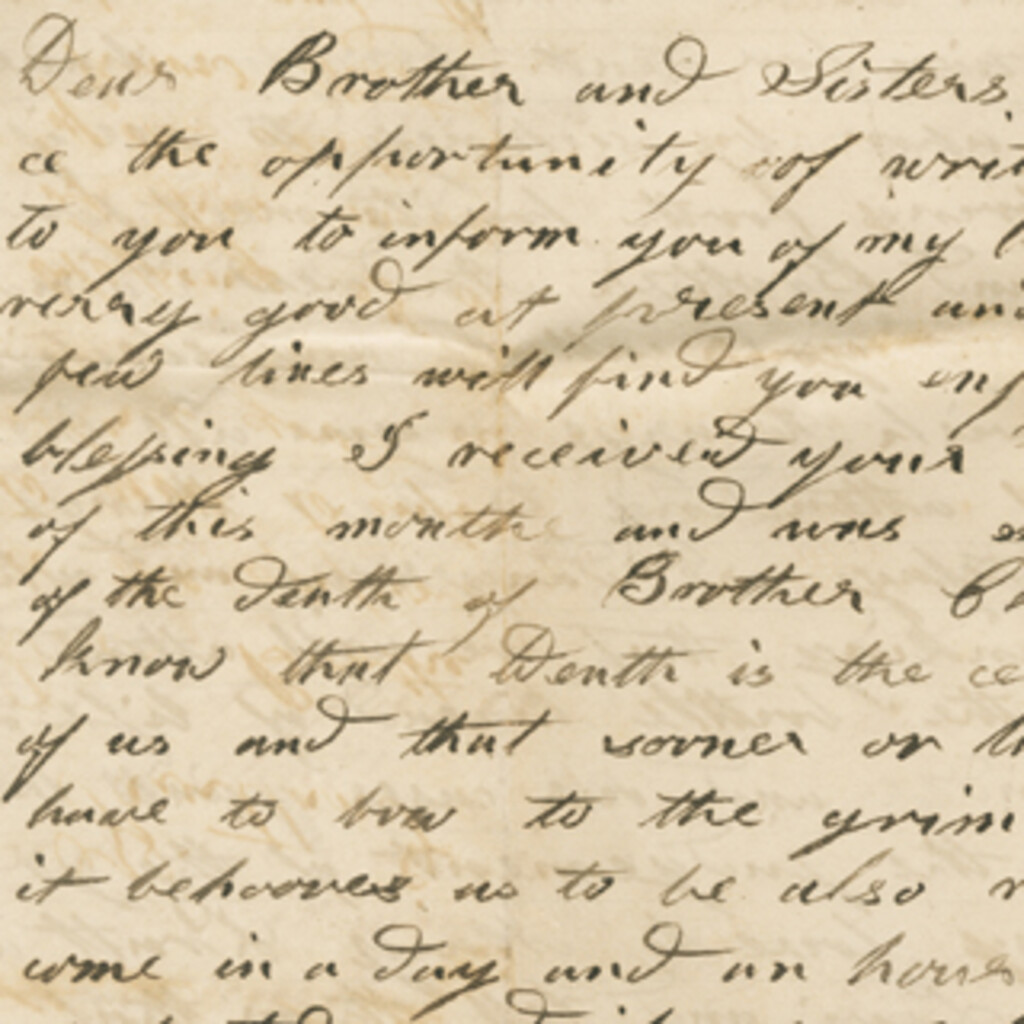 Dear Brother and Sisters
ce the opportunity of writ
to you to inform you of my
verry good at present and
few lines will find you enj
blessing I received your
of this month and was
of the death of Brother
know that Death is the ce
of us and that sooner or
have to bow to the grim
it behooves us to be also r
come in a day and an hour